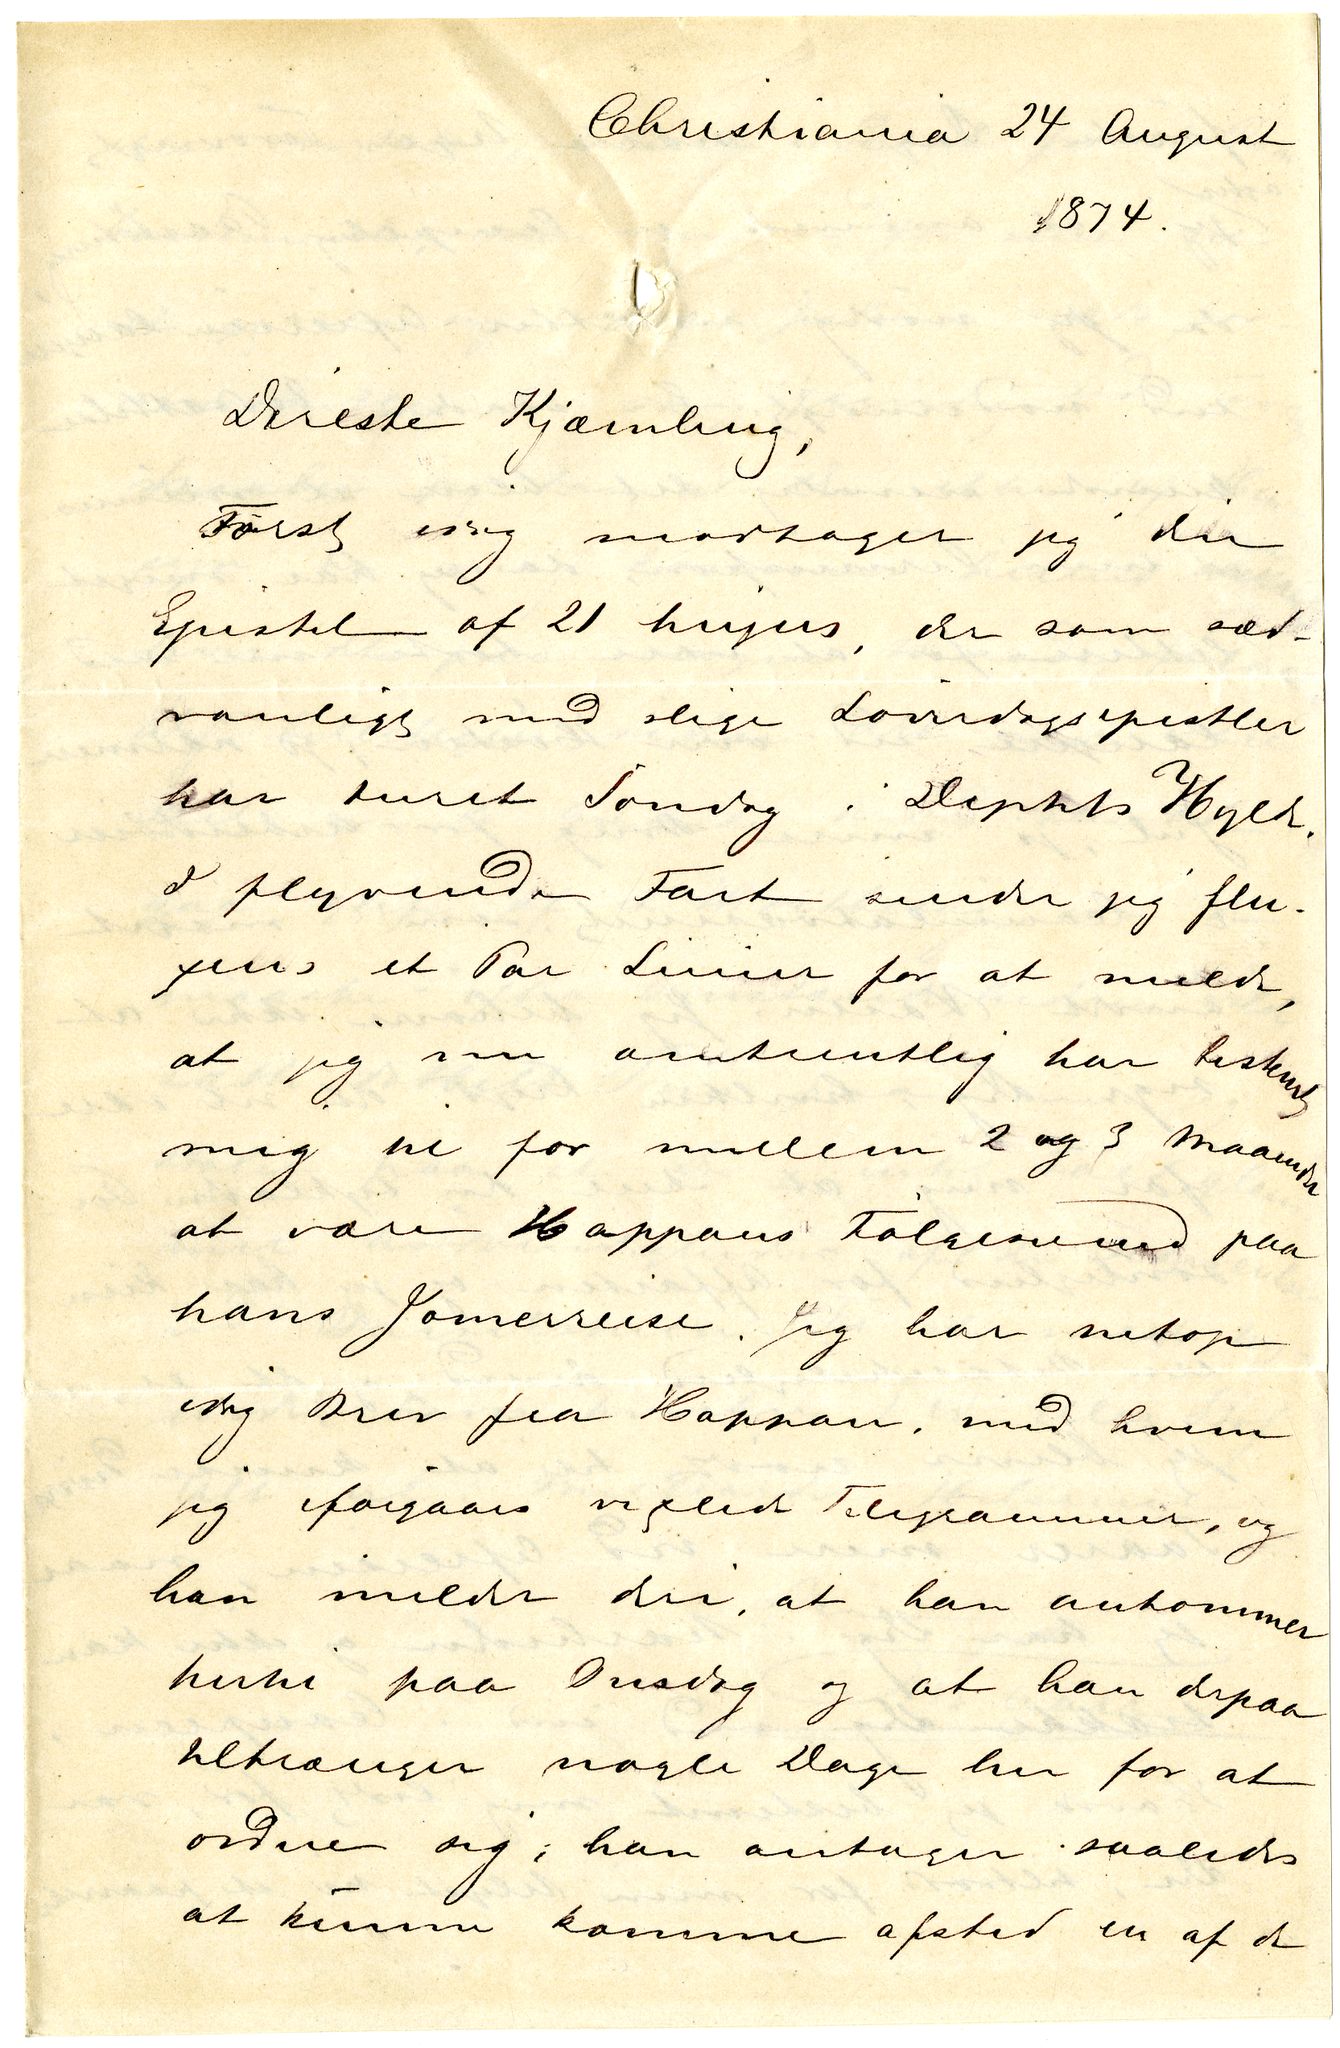 Christiania 24 August
1874.
Kjæmling,
Først idag modtager jeg din
Epistel af 21 hujus, der som sæd-
vanligt med slige Löverdagsepistler
har turet Söndag i Deptets Hylde.
I flyvende Fart sender jeg flu-
xens et Par Linier for at melde,
at jeg nu omtrentlig har bestemt
mig til for mellem 2 og 3 Maaneder
at være Happans Fölgesvend paa
hans Jomerreise. Jeg har netop
idag Brev fra Happan, med hvem
jeg iforgaars vexlede Telegrammer, og
han melder deri, at han ankommer
hertil paa Onsdag og at han derpaa
tiltrænger nogle Dage her for at
ordne sig; han antager saaledes
at kunne komme afsted en af de